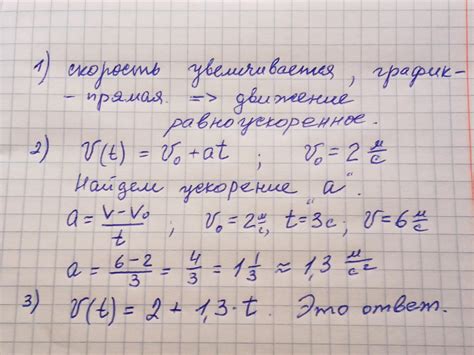 1) скорость увеличивается, график -
- прямая. => движение
равноускоренное.
2) V(t) = V₀ + at ; V₀ = 2 м/с
Найдем ускорение "a".
a = (V-V₀)/t ; V₀ = 2 м/с, t = 3с ; V = 6 м/с
a = (6-2)/3 = 4/3 = 1 1/3 ≈ 1,3 м/с²
3) V(t) = 2 + 1,3 · t. Это ответ.